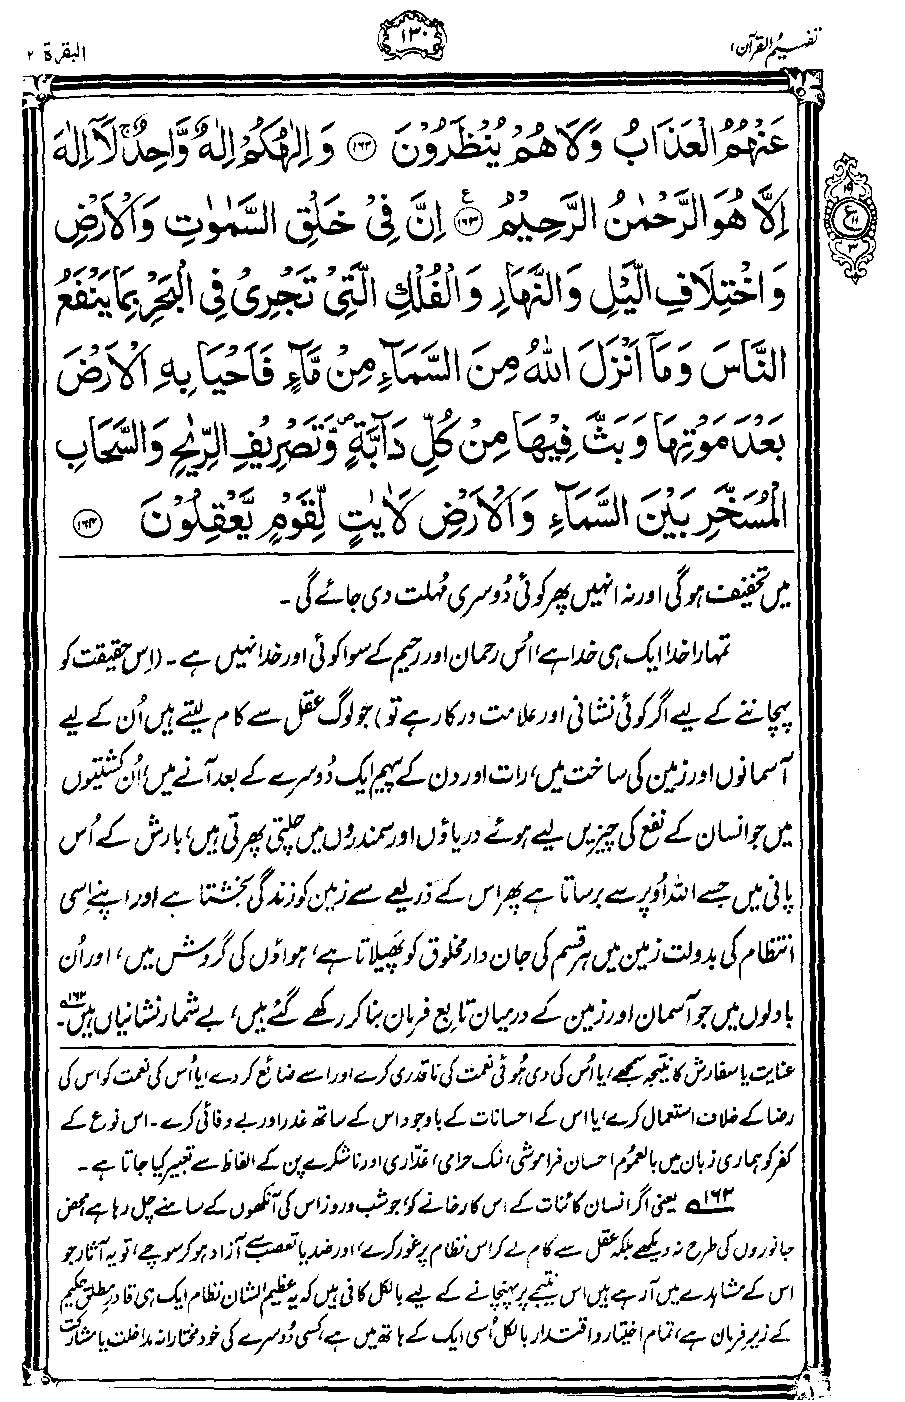 تفہیم القرآن ۱
۱۳۰
البقرة ۲
عَنْهُمُ الْعَذَابُ وَلَا هُمْ يُنْظَرُوْنَ ﴿۱۶۲﴾ وَاِلٰهُكُمْ اِلٰهٌ وَّاحِدٌ ۚ لَآ اِلٰهَ
اِلَّا هُوَ الرَّحْمٰنُ الرَّحِيْمُ ﴿۱۶۳﴾ ع اِنَّ فِيْ خَلْقِ السَّمٰوٰتِ وَالْاَرْضِ
وَاخْتِلَافِ الَّيْلِ وَالنَّهَارِ وَالْفُلْكِ الَّتِيْ تَجْرِيْ فِي الْبَحْرِ بِمَا يَنْفَعُ
النَّاسَ وَمَآ اَنْزَلَ اللّٰهُ مِنَ السَّمَآءِ مِنْ مَّآءٍ فَاَحْيَا بِهِ الْاَرْضَ
بَعْدَ مَوْتِهَا وَبَثَّ فِيْهَا مِنْ كُلِّ دَآبَّةٍ ۖ وَّتَصْرِيْفِ الرِّيٰحِ وَالسَّحَابِ
الْمُسَخَّرِ بَيْنَ السَّمَآءِ وَالْاَرْضِ لَاٰيٰتٍ لِّقَوْمٍ يَّعْقِلُوْنَ ﴿۱۶۴﴾
میں تخفیف ہوگی اور نہ انہیں پھر کوئی دُوسری مُہلت دی جائے گی۔
تمہارا خدا ایک ہی خدا ہے، اُس رحمان اور رحیم کے سوا کوئی اور خدا نہیں ہے۔ (اِس حقیقت کو
پہچاننے کے لیے اگر کوئی نشانی اور علامت درکار ہے تو) جو لوگ عقل سے کام لیتے ہیں اُن کے لیے
آسمانوں اور زمین کی ساخت میں، رات اور دن کے پیہم ایک دُوسرے کے بعد آنے میں، اُن کشتیوں
میں جو انسان کے نفع کی چیزیں لیے ہوئے دریاؤں اور سمندروں میں چلتی پھرتی ہیں، بارش کے اُس
پانی میں جسے اللہ اُوپر سے برساتا ہے پھر اس کے ذریعے سے زمین کو زندگی بخشتا ہے اور اپنے اِسی
انتظام کی بدولت زمین میں ہر قسم کی جان دار مخلوق کو پھیلاتا ہے، ہواؤں کی گردش میں، اور اُن
بادلوں میں جو آسمان اور زمین کے درمیان تابع فرمان بنا کر رکھے گئے ہیں، بے شمار نشانیاں ہیں۱۶۲۔
عنایت یا سفارش کا نتیجہ سمجھے، یا اُس کی دی ہوئی نعمت کی ناقدری کرے اور اسے ضائع کر دے، یا اُس کی نعمت کو اس کی
رضا کے خلاف استعمال کرے، یا اس کے احسانات کے باوجود اس کے ساتھ غدر اور بے وفائی کرے۔ اس نوع کے
کفر کو ہماری زبان میں بالعموم احسان فراموشی، نمک حرامی، غدّاری اور ناشکرے پن کے الفاظ سے تعبیر کیا جاتا ہے۔
۱۶۲ یعنی اگر انسان کائنات کے اس کارخانے کو، جو شب و روز اس کی آنکھوں کے سامنے چل رہا ہے، محض
جانوروں کی طرح نہ دیکھے بلکہ عقل سے کام لے کر اس نظام پر غور کرے، اور ضد یا تعصب سے آزاد ہو کر سوچے، تو یہ آثار جو
اس کے مشاہدے میں آ رہے ہیں اس نتیجے پر پہنچانے کے لیے بالکل کافی ہیں کہ یہ عظیم الشان نظام ایک ہی قادرِ مطلق حکیم
کے زیرِ فرمان ہے، تمام اختیار و اقتدار بالکل اُسی ایک کے ہاتھ میں ہے، کسی دُوسرے کی خود مختارانہ مداخلت یا مشارکت